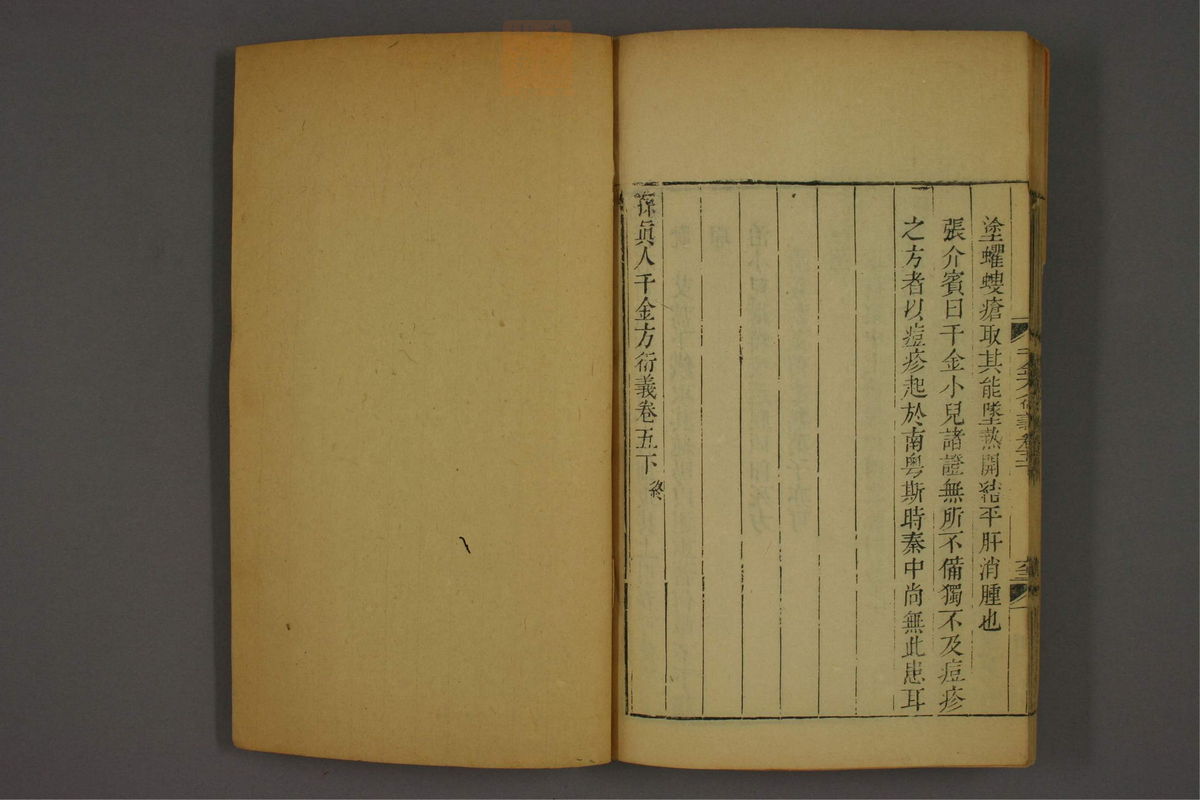 塗蠷螋瘡取其能墜熱開結平肝消腫也
張介賓曰千金小兒諸證無所不備獨不及痘疹
之方者以痘疹起於南粵斯時秦中尚無此患耳
孫眞人千金方衍義卷五下 終